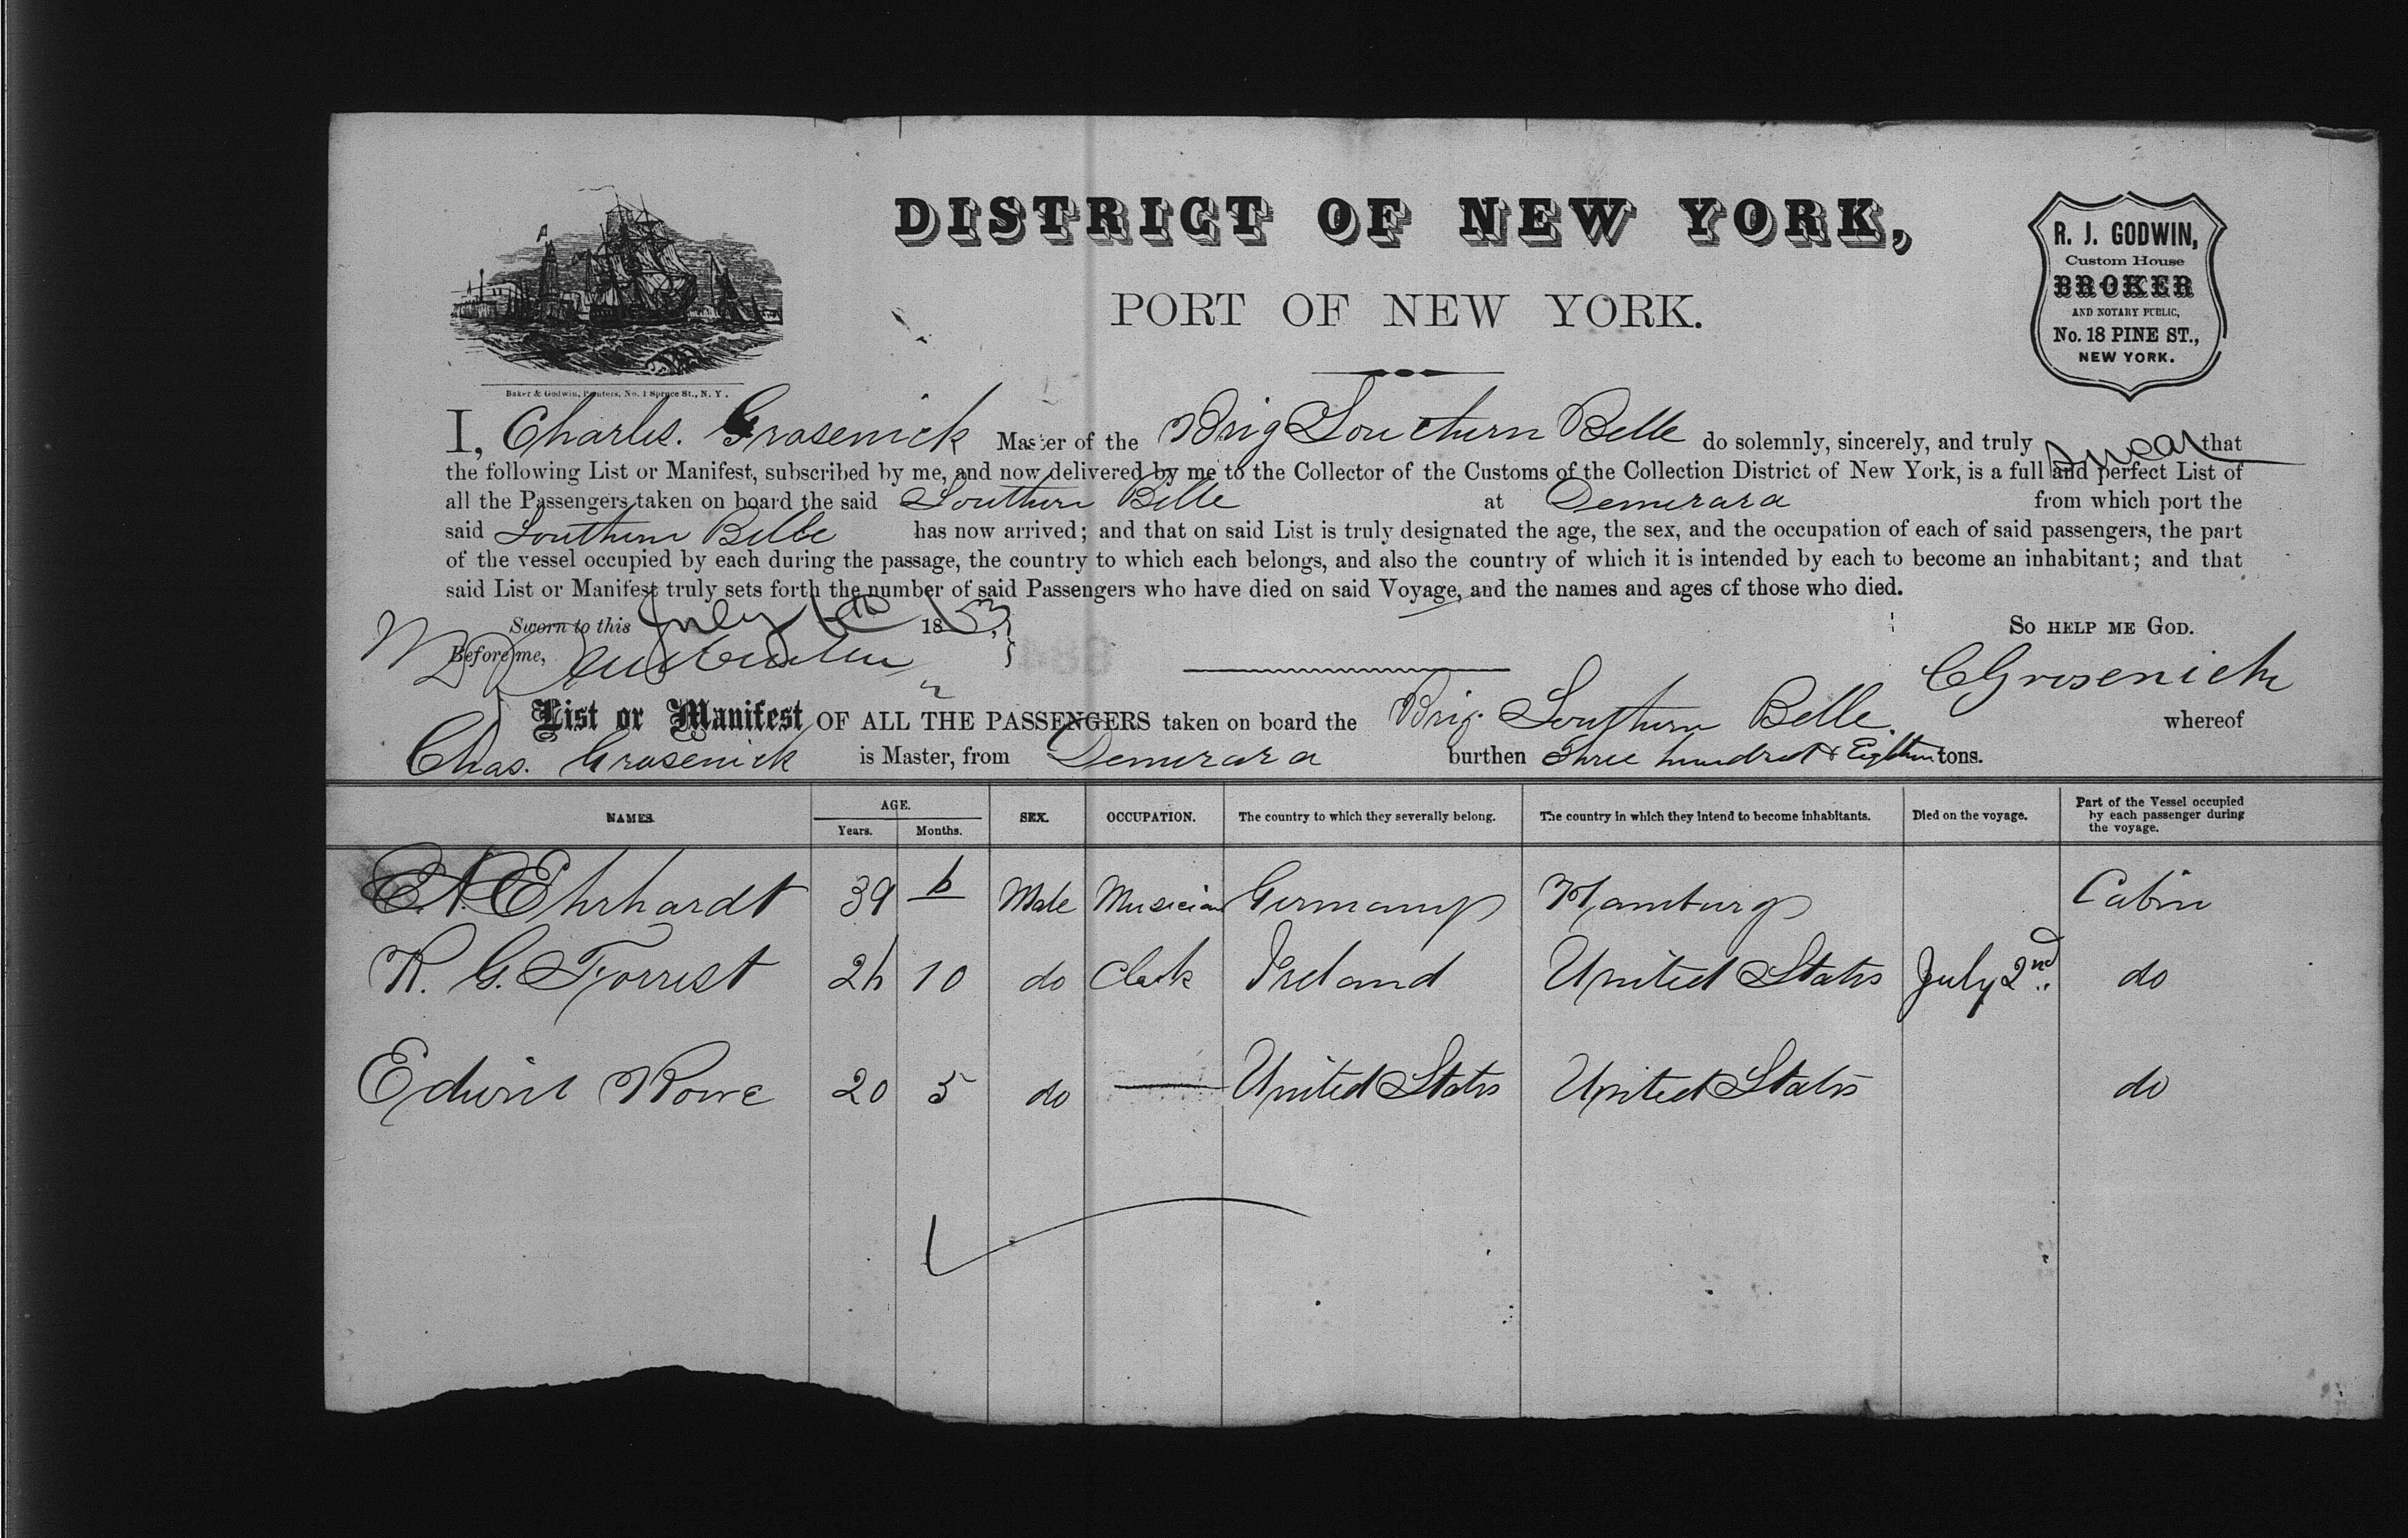 DISTRICT OF NEW YORK,
PORT OF NEW YORK.
R. J. GODWIN,
Custom House
BROKER
AND NOTARY PUBLIC,
No. 18 PINE ST.,
NEW YORK.
Baker & Godwin, Printers, No. 1 Spruce St., N. Y.
I, Charles. Grasenick Master of the Brig Southern Belle do solemnly, sincerely, and truly swear that
the following List or Manifest, subscribed by me, and now delivered by me to the Collector of the Customs of the Collection District of New York, is a full and perfect List of
all the Passengers taken on board the said Southern Belle at Demerara from which port the
said Southern Belle has now arrived; and that on said List is truly designated the age, the sex, and the occupation of each of said passengers, the part
of the vessel occupied by each during the passage, the country to which each belongs, and also the country of which it is intended by each to become an inhabitant; and that
said List or Manifest truly sets forth the number of said Passengers who have died on said Voyage, and the names and ages of those who died.
Sworn to this July 18 So HELP ME GOD.
Before me, CGrosenick
List or Manifest OF ALL THE PASSENGERS taken on board the Brig. Southern Belle. whereof
Chas. Grasenick is Master, from Demerara burthen Three hundred & Eighteen tons.
NAMES. AGE. Years. Months. SEX. OCCUPATION. The country to which they severally belong. The country in which they intend to become inhabitants. Died on the voyage. Part of the Vessel occupied by each passenger during the voyage.
E. A. Ehrhardt 39 6 Male Musician Germany Hamburg Cabin
R. G. Forrest 26 10 do Clerk Ireland United States July 2nd do
Edwin Rowe 20 5 do United States United States do